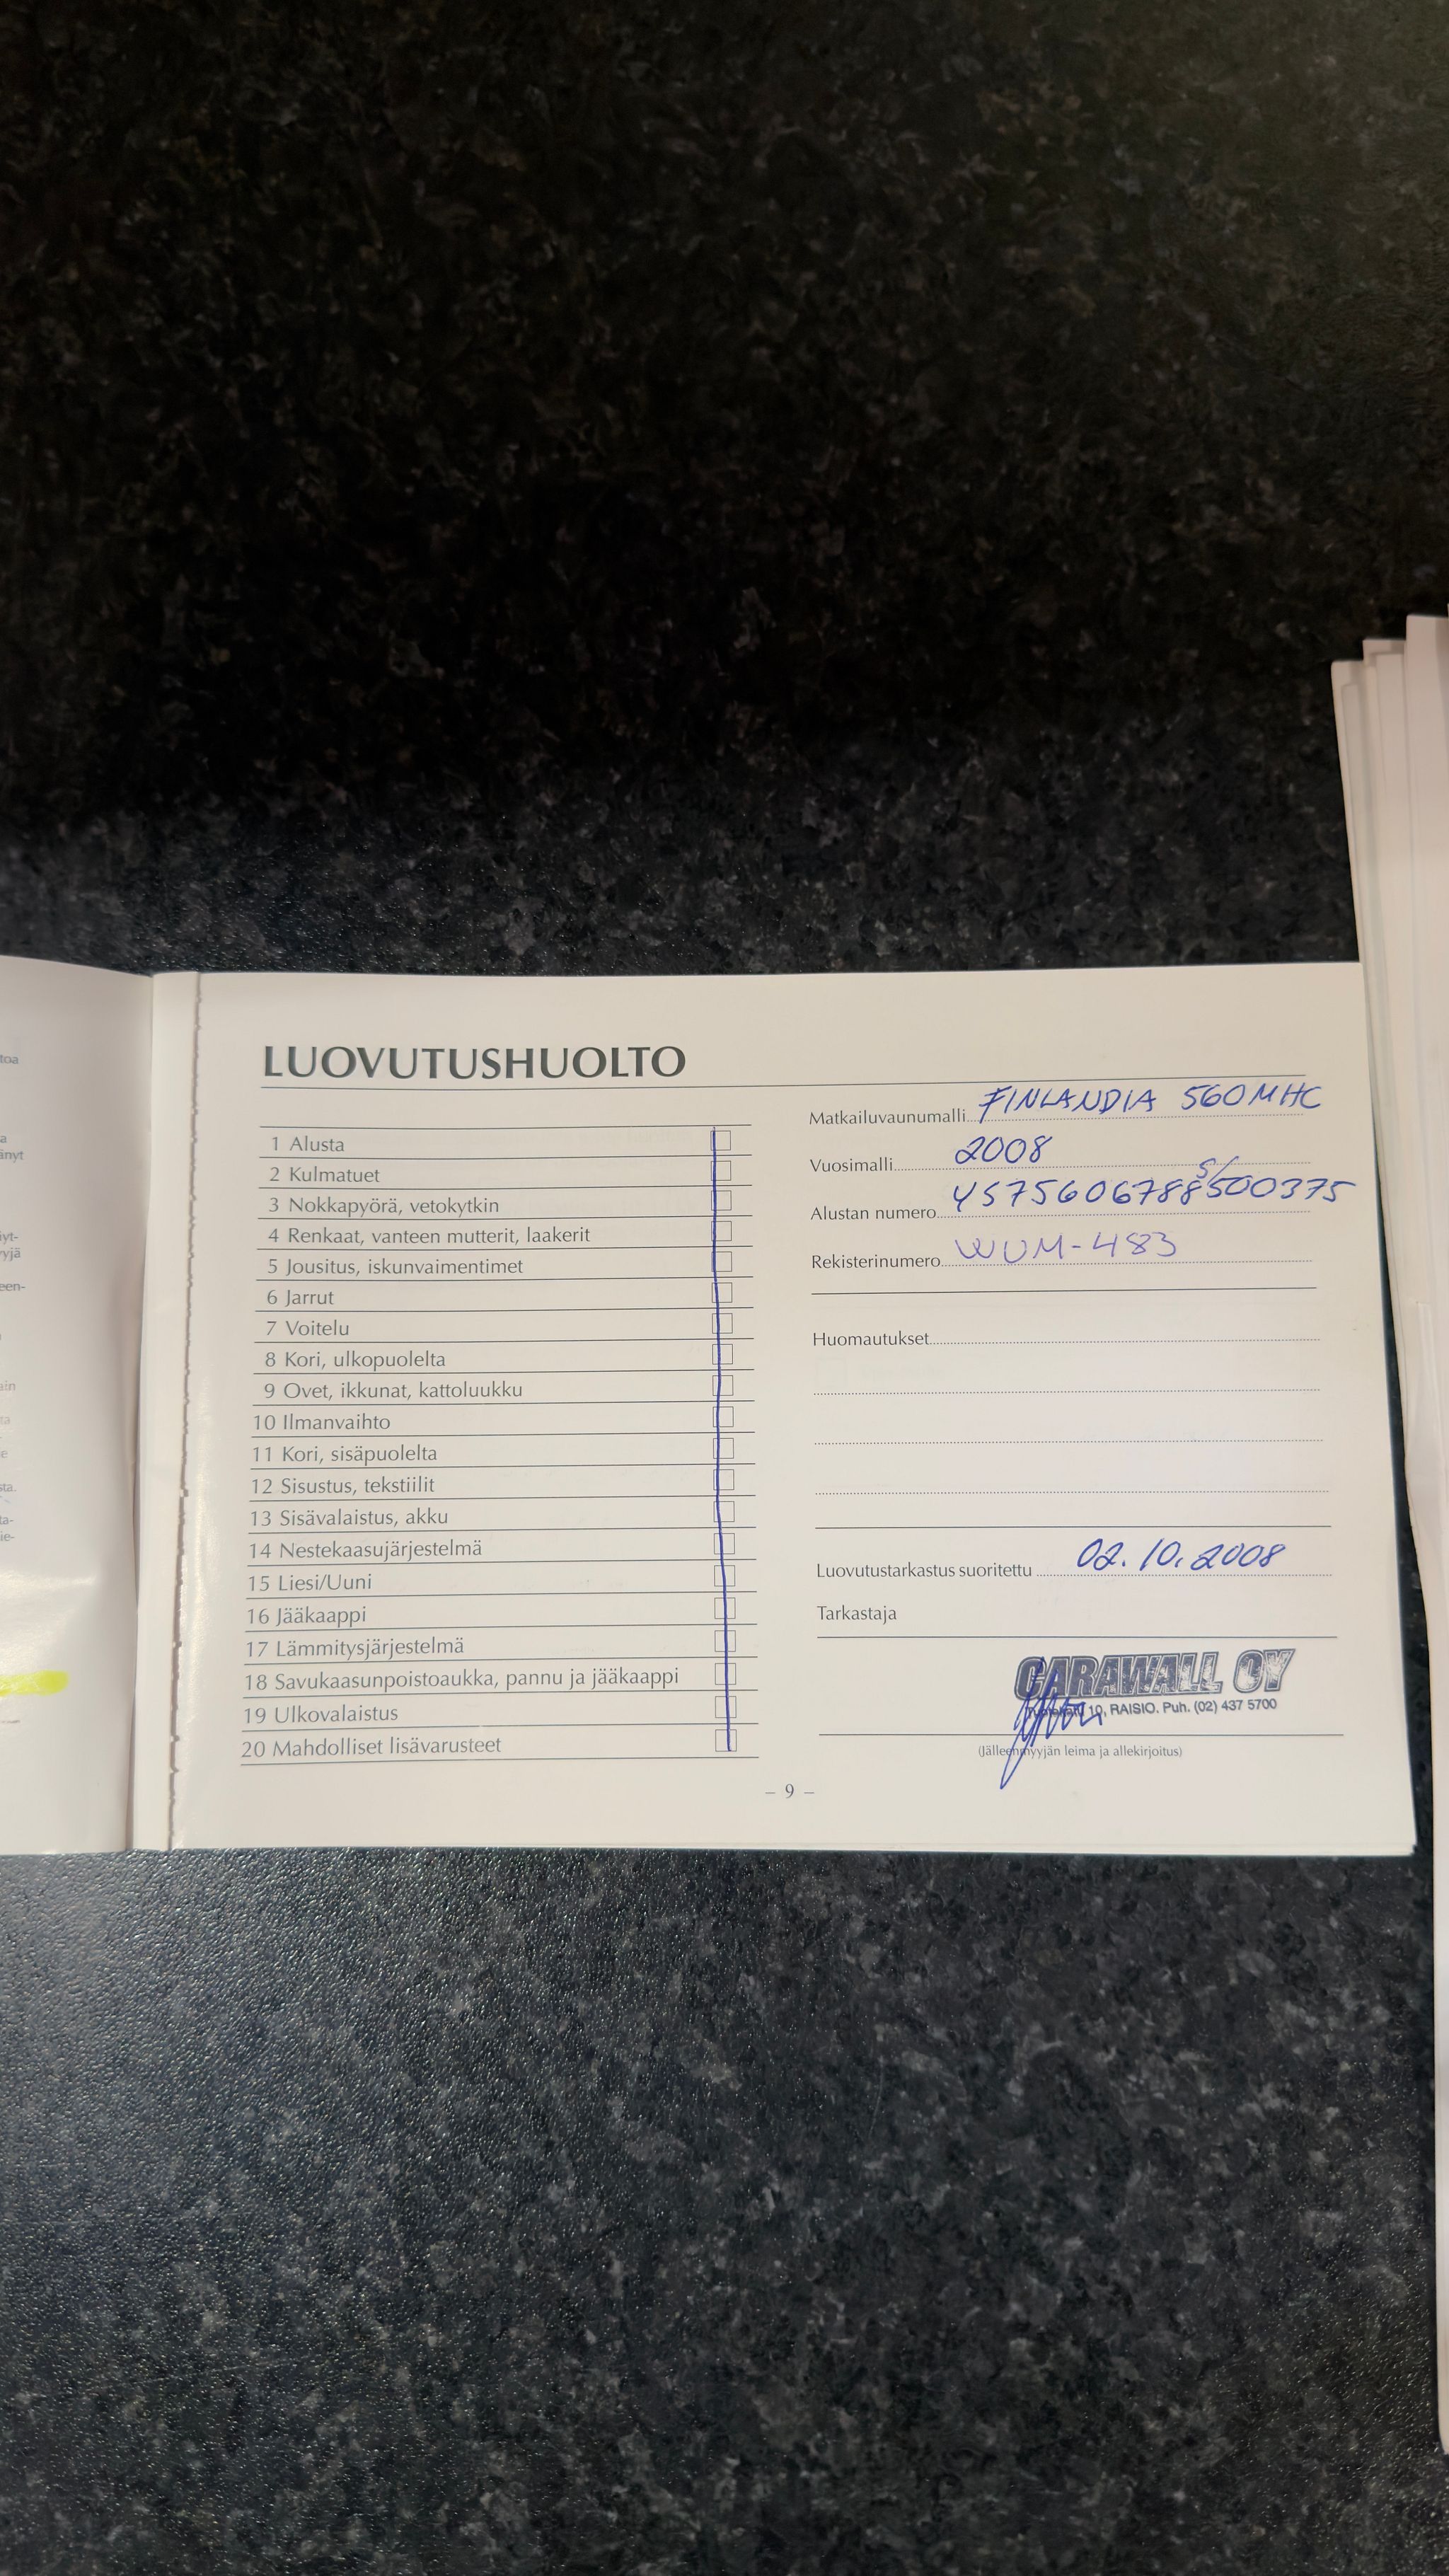 toa
a
änyt
iyt-
yjä
een-
ain
ta
e
sta.
ta-
ie-
LUOVUTUSHUOLTO
1 Alusta
2 Kulmatuet
3 Nokkapyörä, vetokytkin
4 Renkaat, vanteen mutterit, laakerit
5 Jousitus, iskunvaimentimet
6 Jarrut
7 Voitelu
8 Kori, ulkopuolelta
9 Ovet, ikkunat, kattoluukku
10 Ilmanvaihto
11 Kori, sisäpuolelta
12 Sisustus, tekstiilit
13 Sisävalaistus, akku
14 Nestekaasujärjestelmä
15 Liesi/Uuni
16 Jääkaappi
17 Lämmitysjärjestelmä
18 Savukaasunpoistoaukka, pannu ja jääkaappi
19 Ulkovalaistus
20 Mahdolliset lisävarusteet
Matkailuvaunumalli FINLANDIA 560MHC
Vuosimalli 2008
S/
Alustan numero YS75606788500375
Rekisterinumero WUM-483
Huomautukset
Luovutustarkastus suoritettu 02.10.2008
Tarkastaja
CARAWALL OY
10, RAISIO. Puh. (02) 437 5700
(Jälleenmyyjän leima ja allekirjoitus)
– 9 –